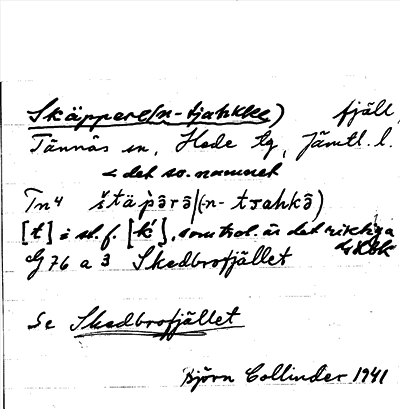 Skäppere(n-tjahkke) fjäll,
Tännäs sn, Hede tg, Jämtl. l.
< det sv. namnet
Tn4 štäpǝrǝ|(-n- tsahkǝ)
[t] i st. f. [k], som trol. är det riktiga
G 76 a 3 Skedbrofjället
Se Skedbrofjället
Björn Collinder 1941